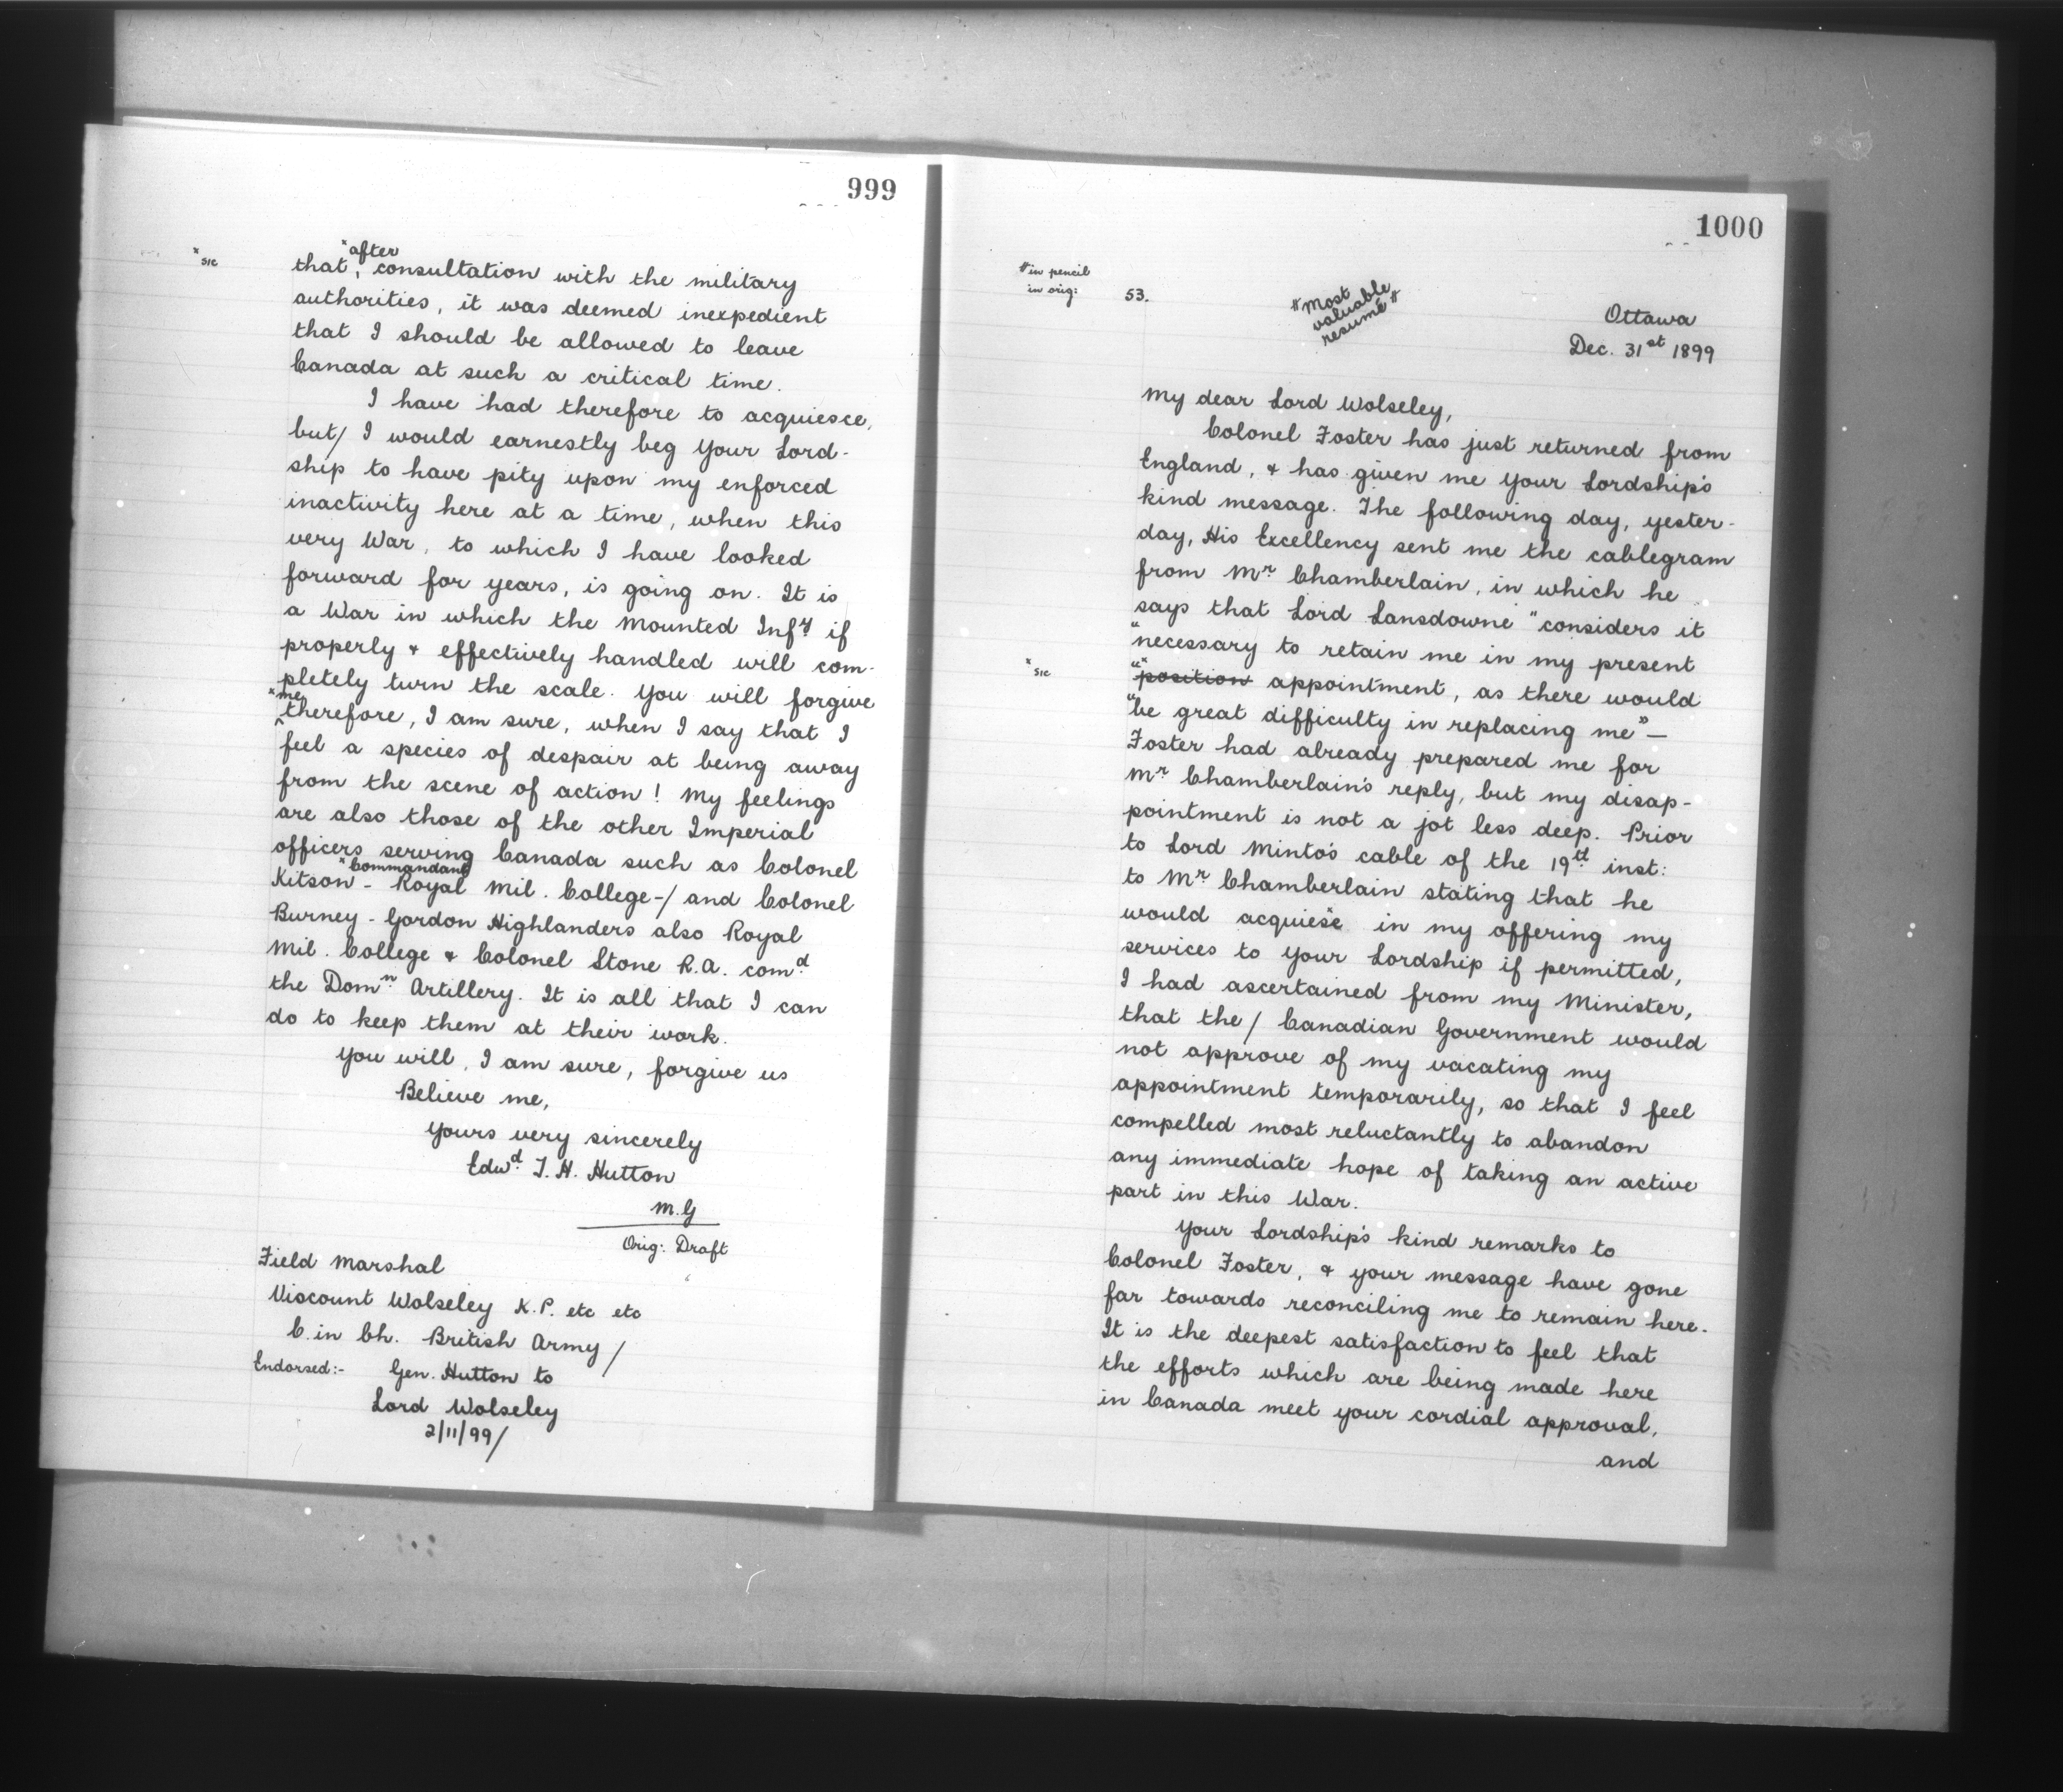 999
*sic
*after
that, consultation with the military
authorities, it was deemed inexpedient
that I should be allowed to leave
Canada at such a critical time.
I have had therefore to acquiesce,
but/ I would earnestly beg your Lord-
ship to have pity upon my enforced
inactivity here at a time, when this
very War, to which I have looked
forward for years, is going on. It is
a War in which the Mounted Infy if
properly & effectively handled will com-
pletely turn the scale. You will forgive
*me
therefore, I am sure, when I say that I
feel a species of despair at being away
from the scene of action! My feelings
are also those of the other Imperial
officers serving Canada such as Colonel
*Commandant
Kitson - Royal Mil. College-/ and Colonel
Burney - Gordon Highlanders also Royal
Mil. College & Colonel Stone R.A. comd
the Domn Artillery. It is all that I can
do to keep them at their work.
You will, I am sure, forgive us
Believe me,
Yours very sincerely
Edwd T. H. Hutton
M.G
Orig: Draft
Field Marshal
Viscount Wolseley K.P. etc etc
C. in Ch. British Army/
Endorsed:- Gen. Hutton to
Lord Wolseley
2/11/99/
1000
#in pencil
in orig:
53.
#Most
valuable
resumé#
Ottawa
Dec. 31st 1899
My dear Lord Wolseley,
Colonel Foster has just returned from
England, & has given me your Lordship's
kind message. The following day, yester-
day, His Excellency sent me the cablegram
from Mr Chamberlain, in which he
says that Lord Lansdowne "considers it
"necessary to retain me in my present
*sic
"*position appointment, as there would
"be great difficulty in replacing me"—
Foster had already prepared me for
Mr Chamberlain's reply, but my disap-
pointment is not a jot less deep. Prior
to Lord Minto's cable of the 19th inst:
to Mr Chamberlain stating that he
would acquiese in my offering my
services to your Lordship if permitted,
I had ascertained from my Minister,
that the/ Canadian Government would
not approve of my vacating my
appointment temporarily, so that I feel
compelled most reluctantly to abandon
any immediate hope of taking an active
part in this War.
Your Lordship's kind remarks to
Colonel Foster, & your message have gone
far towards reconciling me to remain here.
It is the deepest satisfaction to feel that
the efforts which are being made here
in Canada meet your cordial approval,
and